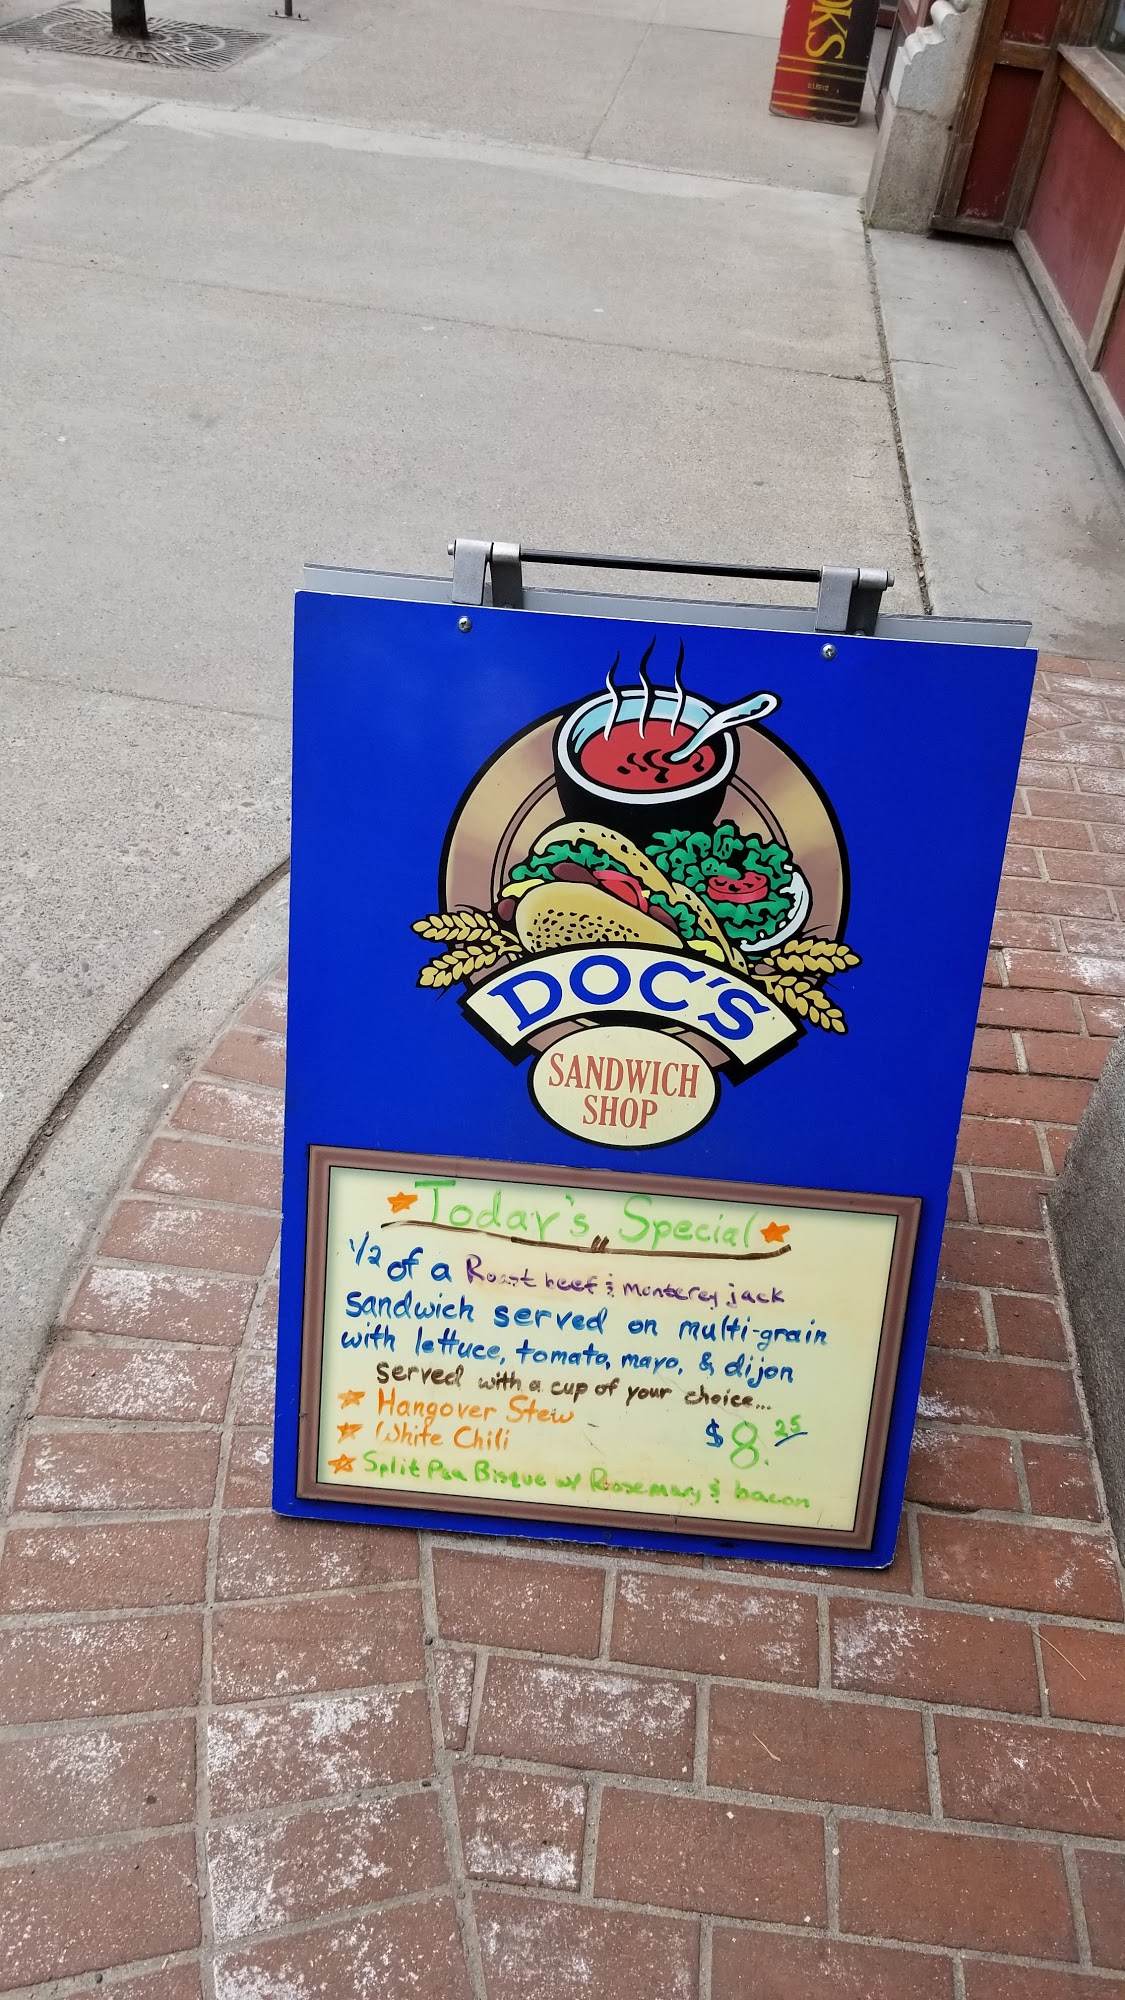 OKS
DOC'S
SANDWICH
SHOP
Today's Special
1/2 of a Roast beef & monterey jack
sandwich served on multi-grain
with lettuce, tomato, mayo, & dijon
served with a cup of your choice...
Hangover Stew
White Chili
$8.25
Split Pea Bisque w/ Rosemary & bacon